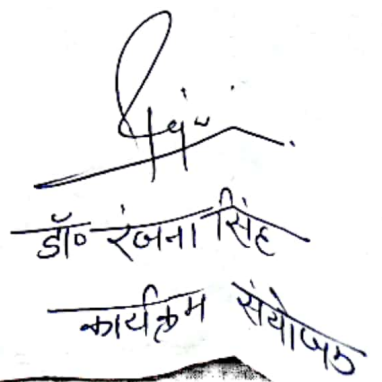 डॉ० रंजना सिंह
कार्यक्रम संयोजक